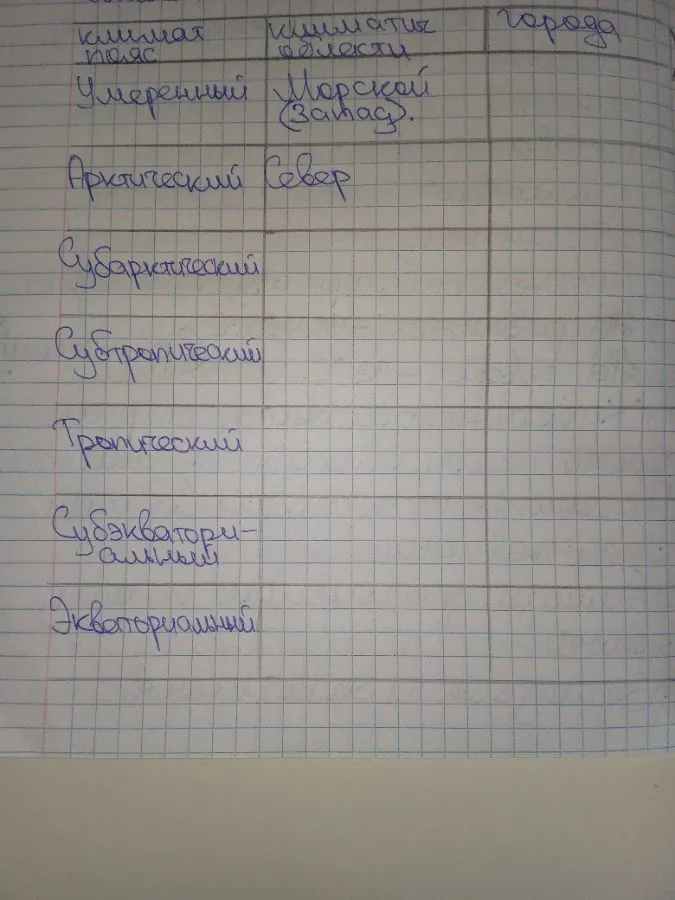 климат климатич города
пояс области
Умеренный Морской
(Запад).
Арктический Север
Субарктический
Субтропический
Тропический
Субэкватори-
альный
Экваториальный